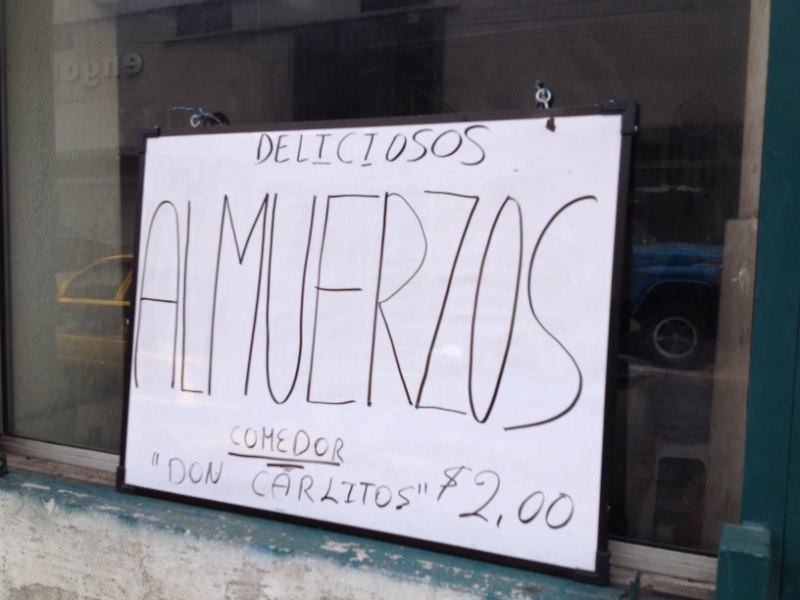 DELICIOSOS
ALMUERZOS
COMEDOR
"DON CARLITOS" $2,00